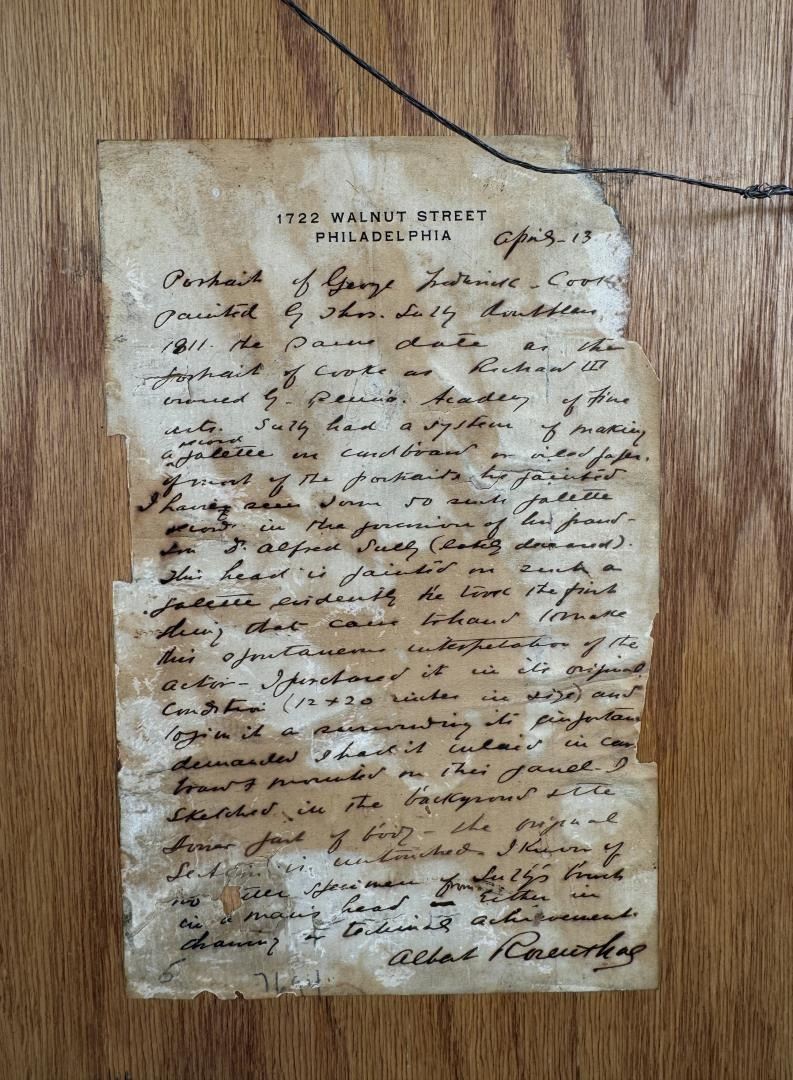 1722 WALNUT STREET
PHILADELPHIA
April 13
Portrait of George Frederick Cooke
painted by Thos. Sully doubtless
1811. the same date as the
portrait of Cooke as Richard III
owned by Penna. Academy of Fine
Arts. Sully had a system of making
a record palette on cardboard or oiled paper,
of most of the portraits he painted
I have seen some 50 such palette
records in the possession of his grand-
son Dr. Alfred Sully (lately deceased).
This head is painted on such a
palette evidently he took the first
thing that came to hand to make
this spontaneous interpretation of the
actor - I purchased it in its original
condition (12 x 20 inches in size) and
to give it a surrounding its importance
demanded I had it inlaid in
and mounted on this panel - I
sketched in the background & the
lower part of body - the original
is untouched. I know of
no specimen from Sully's brush
in a man's head - Either in
drawing or technical achievement.
Albert Rosenthal
6